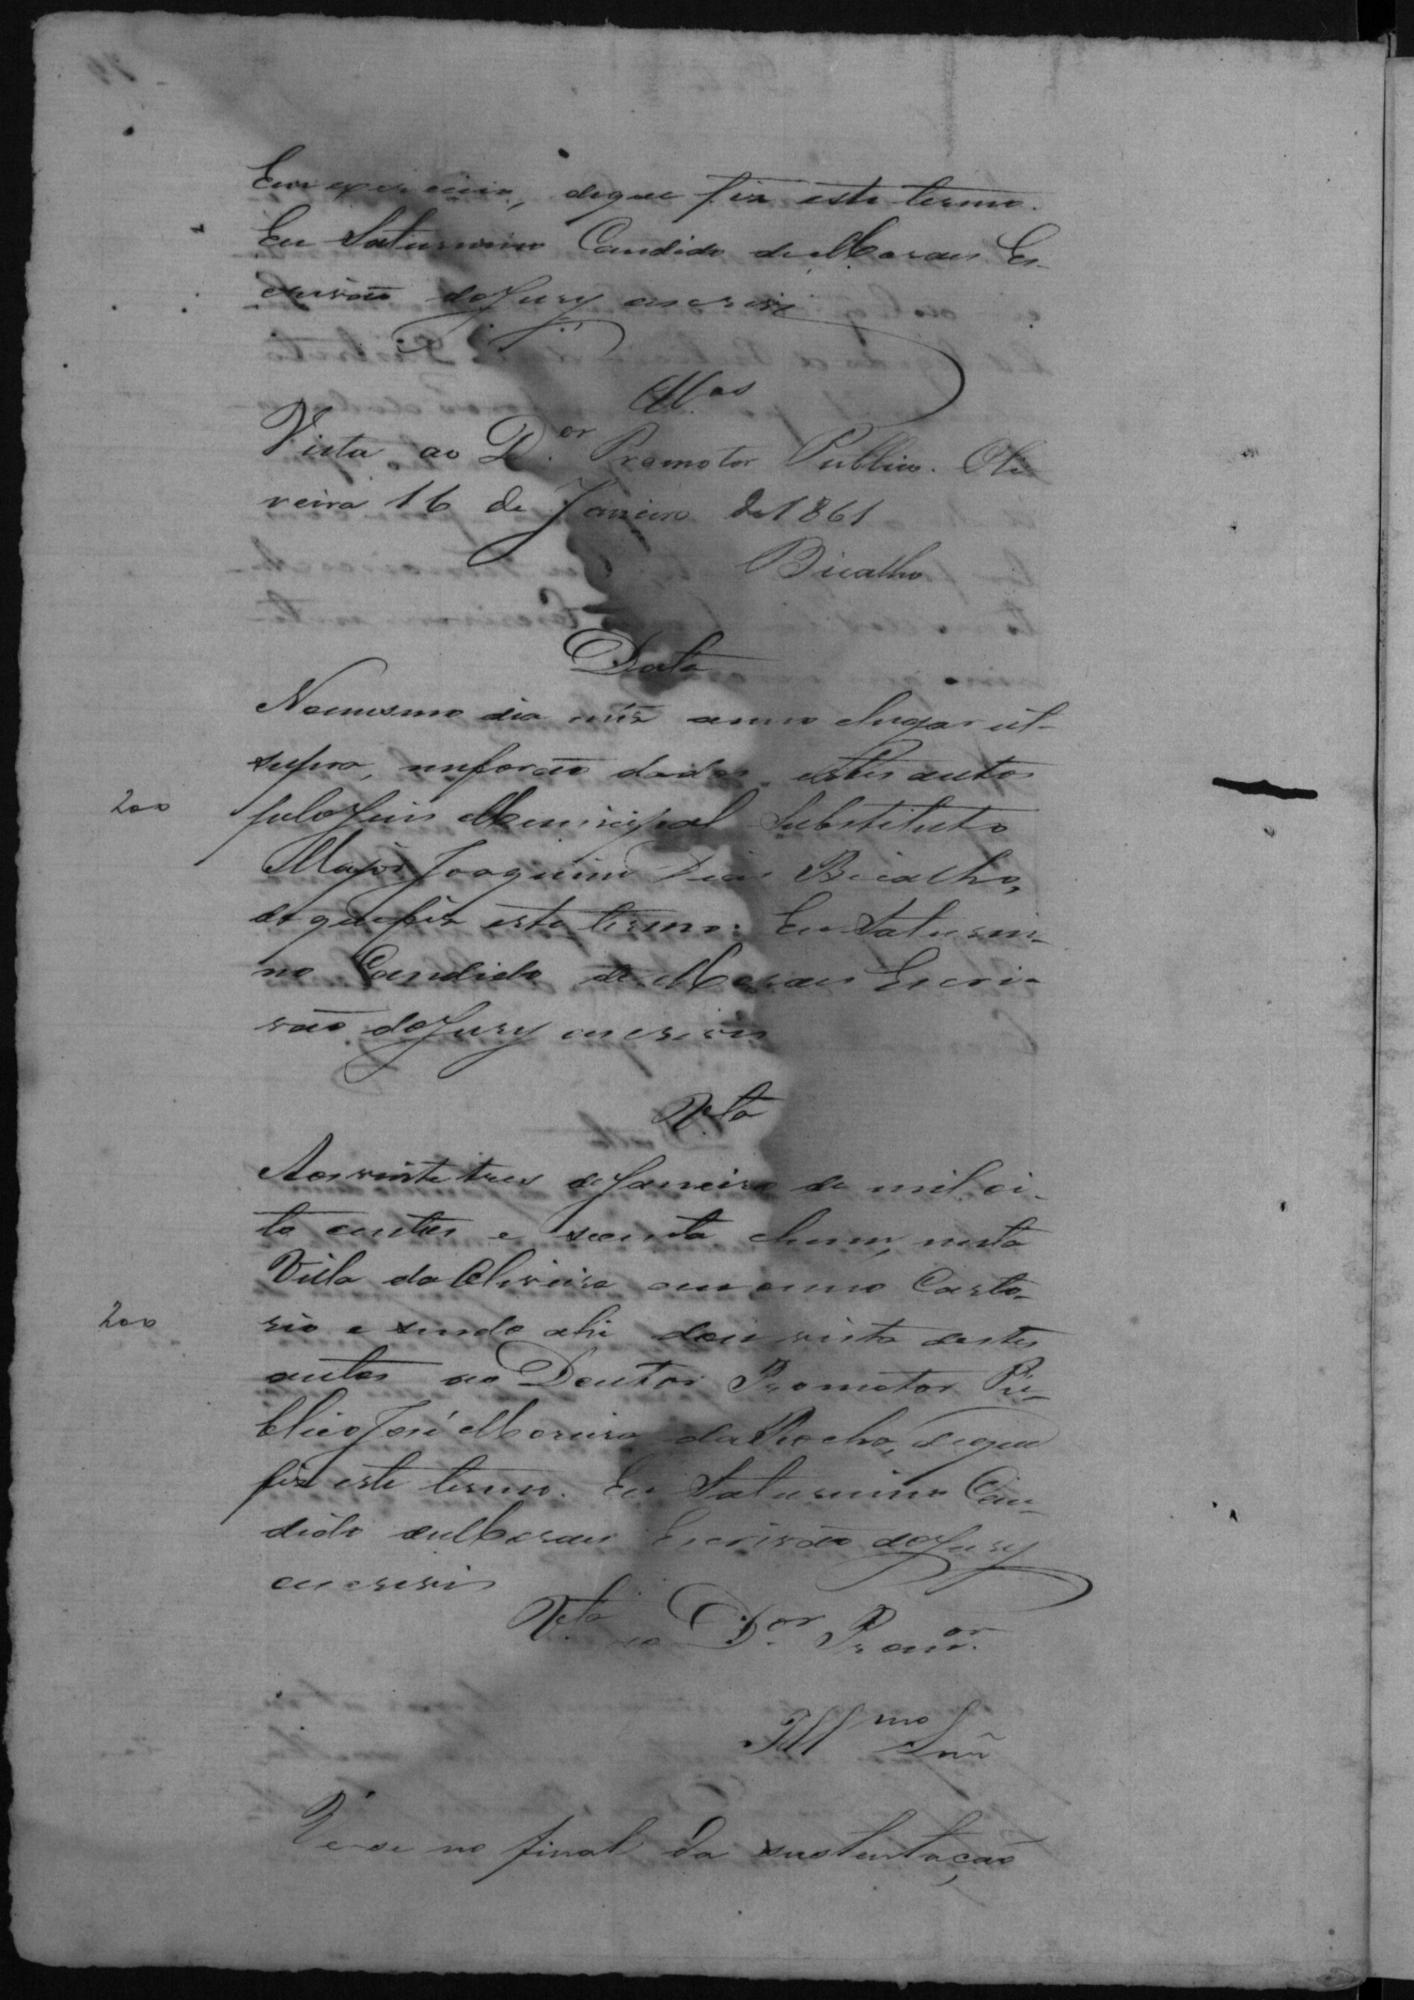 Em exercicio, deque fiz este termo.
Eu Saturnino Candido de Moraes Es-
crivão do Jury escrivi
Cls.os
Vista ao D.or Promotor Publico. Oli
veira 16 de Janeiro de 1861
Bicalho
Data
Nomesmo dia mêz anno elugar ut-
supra, meforão dados estes autos
200
pelo Juis Municipal Substituto
Major Joaquim Dias Bicalho,
de quefiz este termo: Eu Saturni-
no Candido de Moraes Escri-
vão do Jury escrivi
V.ta
Aos vinte tres de Janeiro de mil oi-
to centos e secenta ehum, nesta
Villa da Oliveira em omeo Carto-
200
rio e sendo ahi dou vista destes
autos ao Doutor Promotor Pu-
blico José Moreira da Rocha, deque
fiz este termo. Eu Saturnino Can-
dido de Moraes Escrivão do Jury
escrivi
V.ta ao D.or Prom.or
Ill mo Snr
Ve-se no final da sustentação